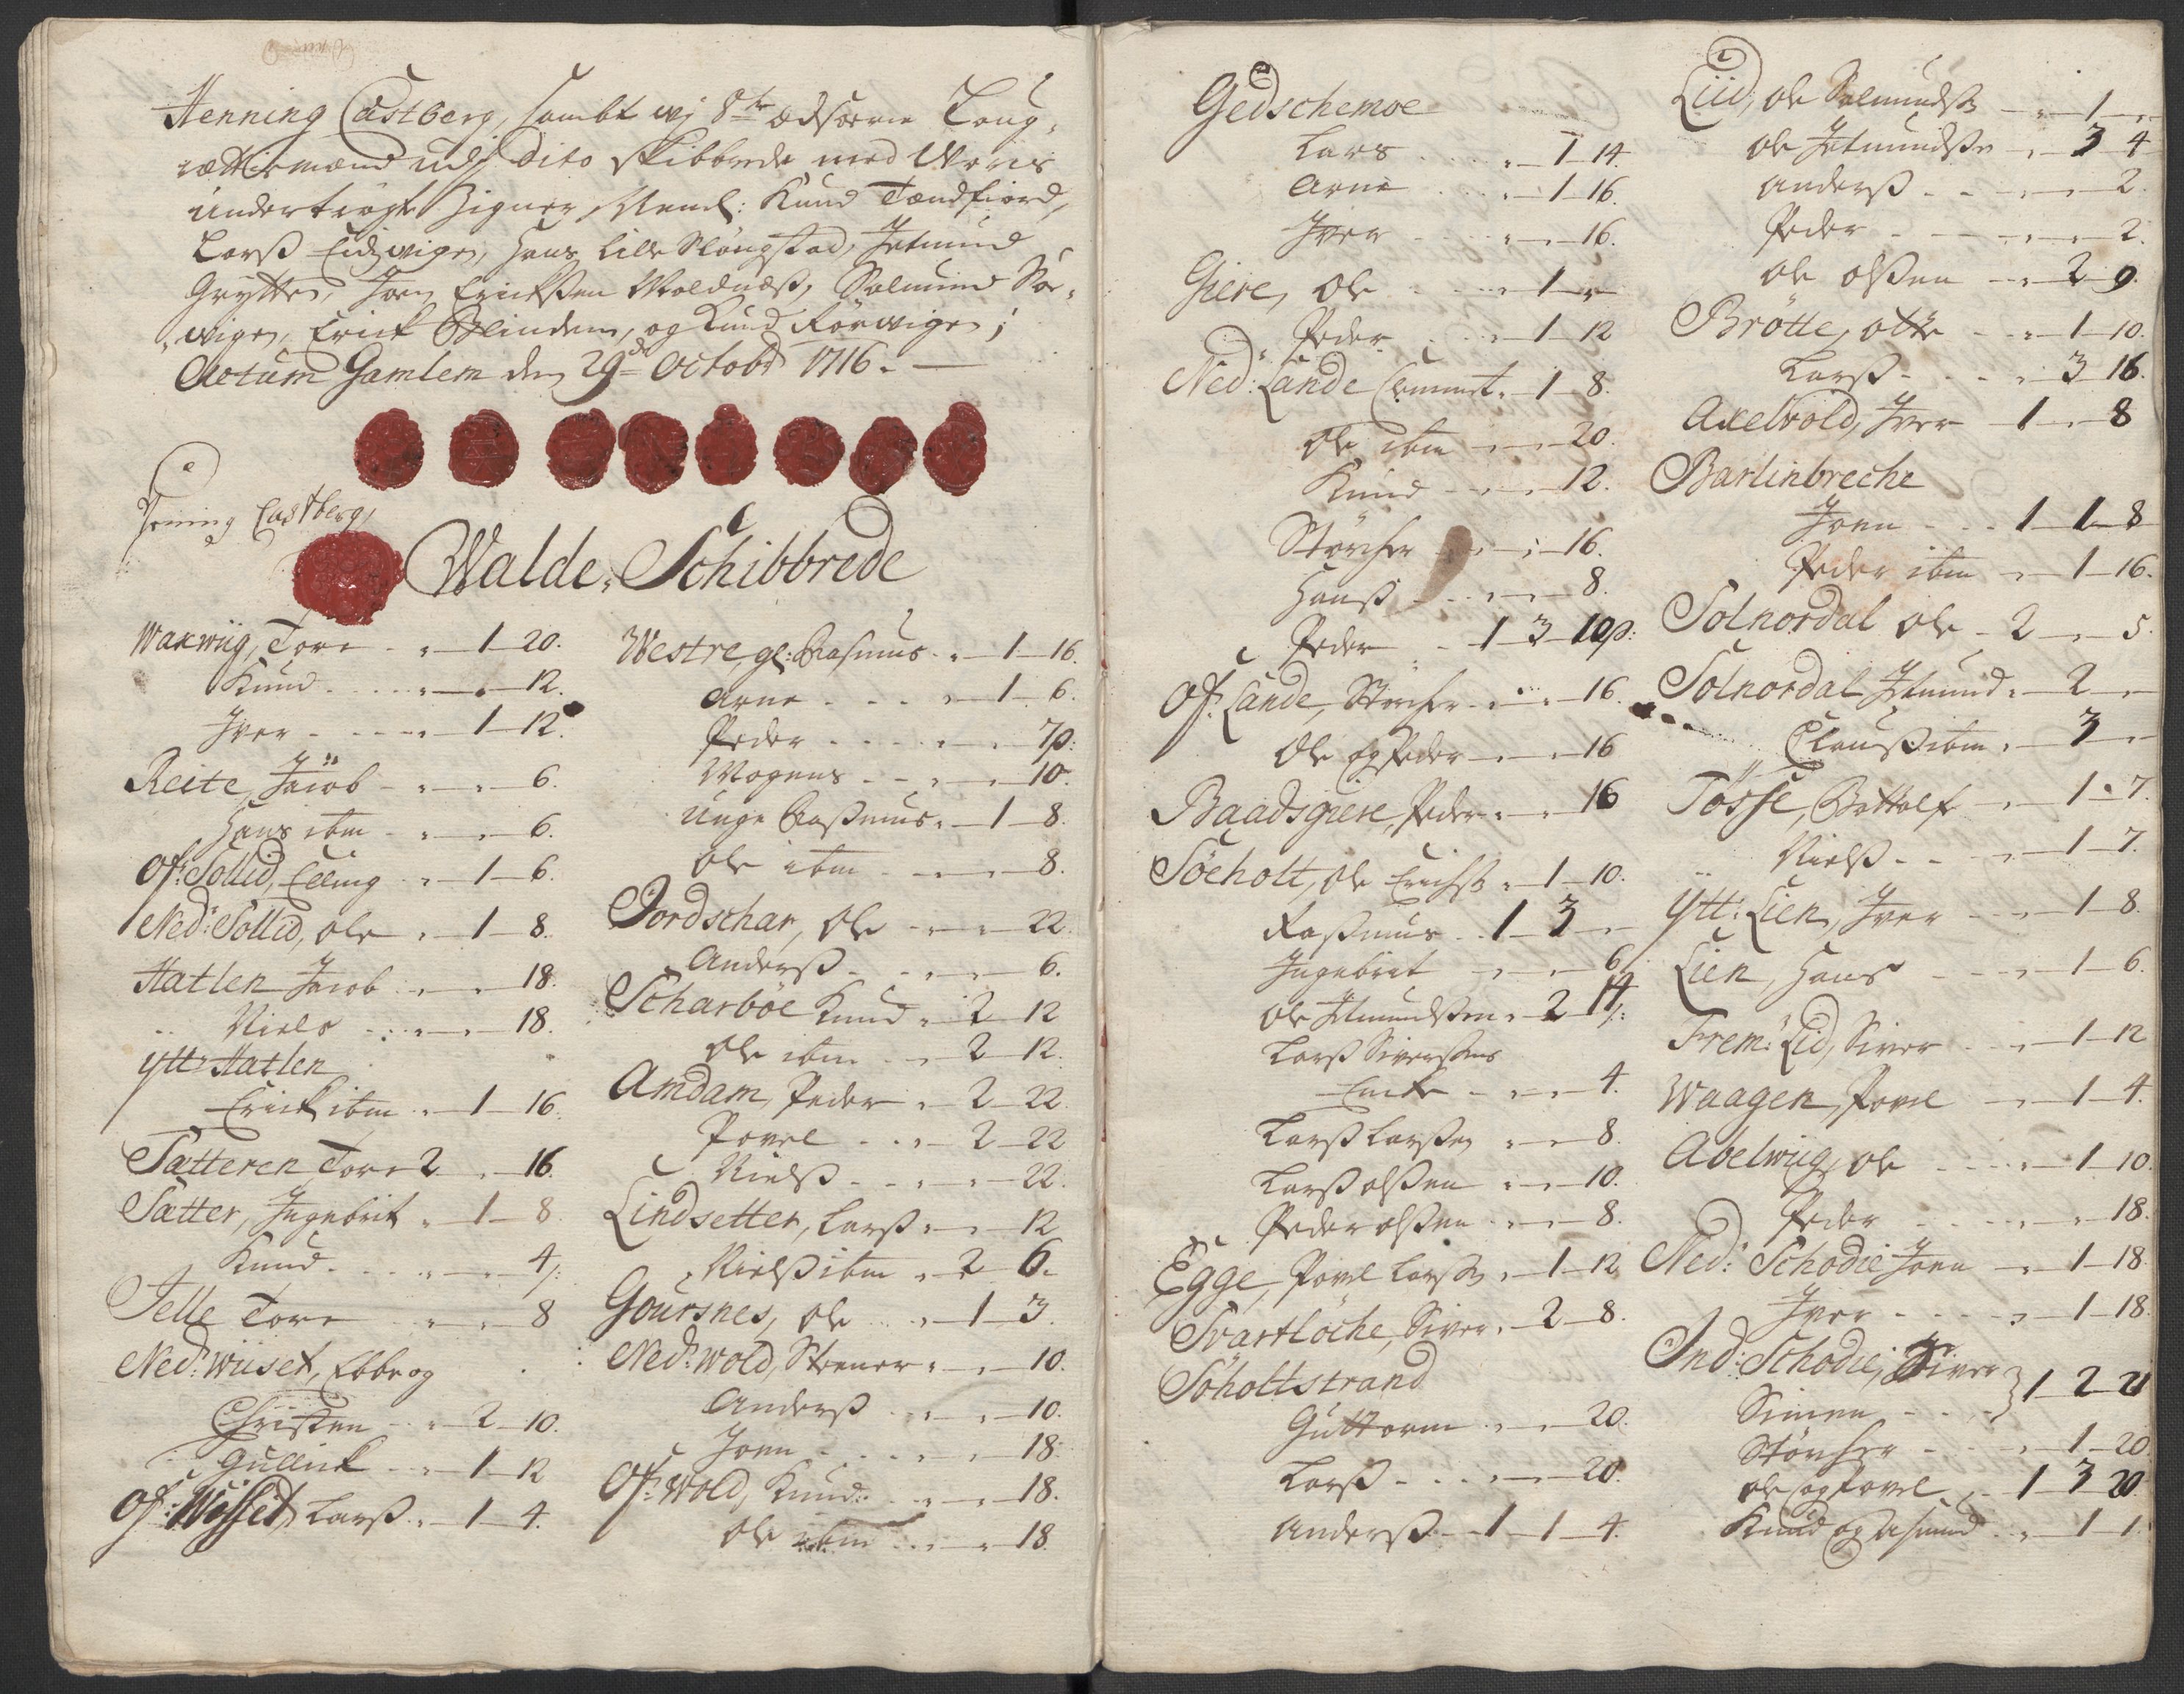 Henning Castberg, sambt vj 8te Edsorne Laug-
rættesmænd udj dito Skibbrede med Woris
undertrøgte Zigner, Navnl: Knud Tændfiord,
Larß Eidzvigen, Hans Lille Slöngstad, Jetmund
Grytten, Joen Erichßen Woldnæß, Salmund Sør-
vigen, Erick Blindem, og Knud Förvigen;
Actum Gamlem den 29de Octobr 1716.
Hening Castberg
Walde Schibbrede
Waxwiig, Tore - " - 1 - 20.
Knud - " - " - 12.
Iver - " - 1 - 12.
Reite, Jacob - " - " - 6.
Hans ibm - " - " - 6.
Of: Sollid, Elling - " - 1 - 6.
Ned: Sollid, Ole - " - 1 - 8.
Hatlen Jacob - " - " - 18.
Niels - " - " - 18.
Ytt: Hatlen
Erick ibm - " - 1 - 16.
Sætteren Tore 2 - " - 16.
Sætter, Ingebrit - " - 1 - 8.
Knud - " - " - 4/:
Felle Tore - " - " - 8
Ned: Wiiset, Ebbe og
Christen - " - 2 - 10.
Gullick - " - 1 - 12
Of: Wisset Larß - " - 1 - 4.
Westre, gl: Rasmus - " - 1 - 16.
Arne - " - 1 - 6.
Peder - " - " - 7p:
Mogens - " - " - 10.
Unge Raßmus - " - 1 - 8.
Ole ibm - " - " - 8.
Jordschar, Ole - " - " - 22.
Anderß - " - " - 6.
Scharböe Knud - " - 2 - 12
Ole ibm - " - 2 - 12.
Amdam, Peder - " - 2 - 22.
Povel - " - 2 - 22
Nielß - " - " - 22.
Lindsetter, Larß - " - " - 12
Nielß ibm - " - 2 - 6.
Goursnes, Ole - " - 1 - 3.
Ned: Wold, Stener - " - " - 10.
Anderß - " - " - 10.
Joen - " - " - 18.
Of: Wold, Knud - " - " - 18.
Ole ibm - " - " - 18.
Gedschemoe
Lars - " - 1 - 14.
Arne - " - 1 - 16.
Iver - " - " - 16.
Giere, Ole - " - 1 - "
Peder - " - 1 - 12
Ned: Lande Clemmet - " - 1 - 8.
Ole ibm - " - " - 20.
Knud - " - " - 12.
Störcher - " - " - 16.
Hanß - " - " - 8.
Peder - 1 - 3 - 10p:
Of: Lande, Störcher - " - " - 16.
Ole og Peder - " - " - 16
Baadsgiere, Peder - " - " - 16
Söeholt, Ole Erichß: - " - 1 - 10.
Raßmus - 1 - 3 - "
Ingebret - " - " - 6/:
Ole Jetmundßen - " - 2 - 14/:
Larß Siverßens
Encke - " - " - 4.
Larß Larßen - " - " - 8.
Larß Olßen - " - " - 10.
Peder Olßen - " - " - 8.
Egge, Povel Larß: - " - 1 - 12
Svartløche, Siver - " - 2 - 8.
Söholtstrand
Guttorm - " - " - 20.
Larß - " - " - 20.
Anderß - 1 - 1 - 4.
Liid, Ole Salmundß: - " - 1 - "
Ole Jetmundßen - " - 3 - 4
Anderß - " - " - 2.
Peder - " - " - 2.
Ole Olßen - " - 2 - 9.
Brøtte, Otte - " - 1 - 10.
Larß - " - 3 - 16.
Axelvold, Iver - 1 - " - 8
Barlinbreche
Joen - 1 - 1 - 8
Peder ibm - " - 1 - 16.
Solnordal Ole - 2 - " - 5.
Solnordal Jetmund - " - 2 - "
Clauß ibm - " - 3 - "
Tösse, Bottolf - " - 1 - 7.
Nielß - " - 1 - 7.
Ytt: Lien, Iver - " - 1 - 8.
Lien, Hans - " - 1 - 6.
Frem: Lid, Siver - " - 1 - 12
Waagen, Povel - " - 1 - 4.
Abelwiig, Ole - " - 1 - 10.
Peder - " - " - 18.
Ned: Schodie Joen - " - 1 - 18.
Iver - " - 1 - 18.
Ind: Schodie, Siver
Simen } 1 - 2 - 21
Störcher - " - 1 - 20
Ole og Povel - 1 - 3 - 20.
Knud og Asmund - " - 1 - 1.